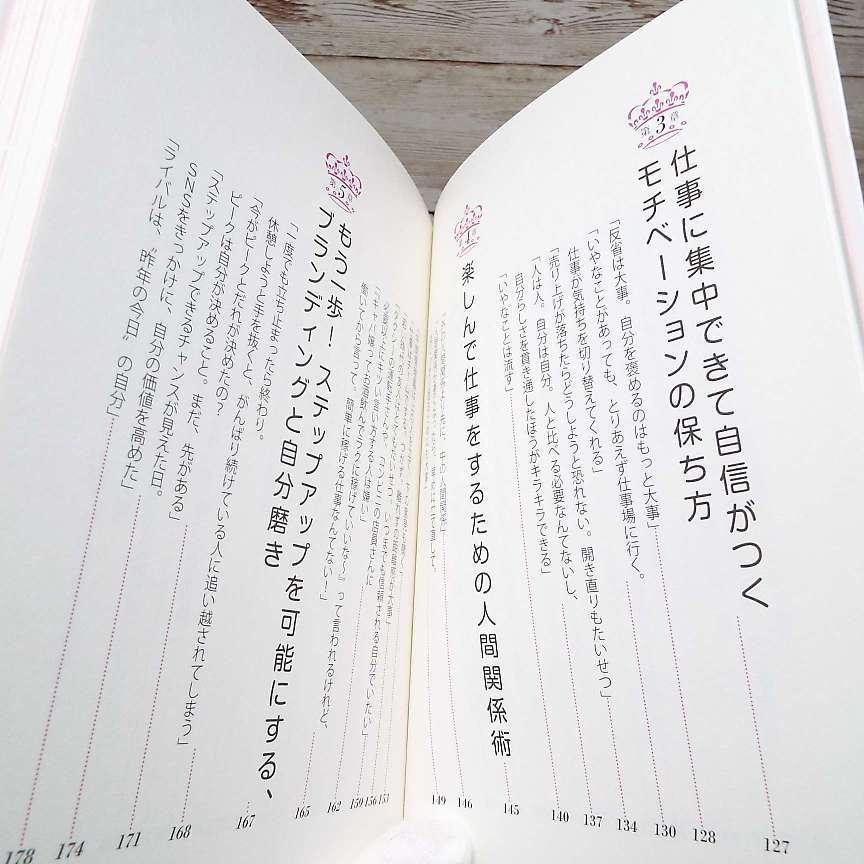 第3章
仕事に集中できて自信がつく
モチベーションの保ち方
127
「反省は大事。自分を褒めるのはもっと大事」
128
「いやなことがあっても、とりあえず仕事場に行く。
仕事が気持ちを切り替えてくれる」
130
「売り上げが落ちたらどうしようと恐れない。開き直りもたいせつ」
134
「人は人、自分は自分。人と比べる必要なんてないし、
自分らしさを貫き通したほうがキラキラできる」
137
「いやなことは流す」
140
第4章
楽しんで仕事をするための人間関係術
145
146
149
153
156
「キャバ嬢ってお酒飲んでラクに稼げていいな〜』って言われるけれど、
働いてから言って。簡単に稼げる仕事なんてない！」
159
162
第5章
もう一歩！ステップアップを可能にする、
ブランディングと自分磨き
165
「一度でも立ち止まったら終わり。
休憩しようと手を抜くと、がんばり続けている人に追い越されてしまう」
167
「今がピークとだれが決めたの？
ピークは自分が決めること。まだ、先がある」
168
「ステップアップできるチャンスが見えた日。
171
SNSをきっかけに、自分の価値を高めた」
174
「ライバルは、"昨年の今日"の自分」
178